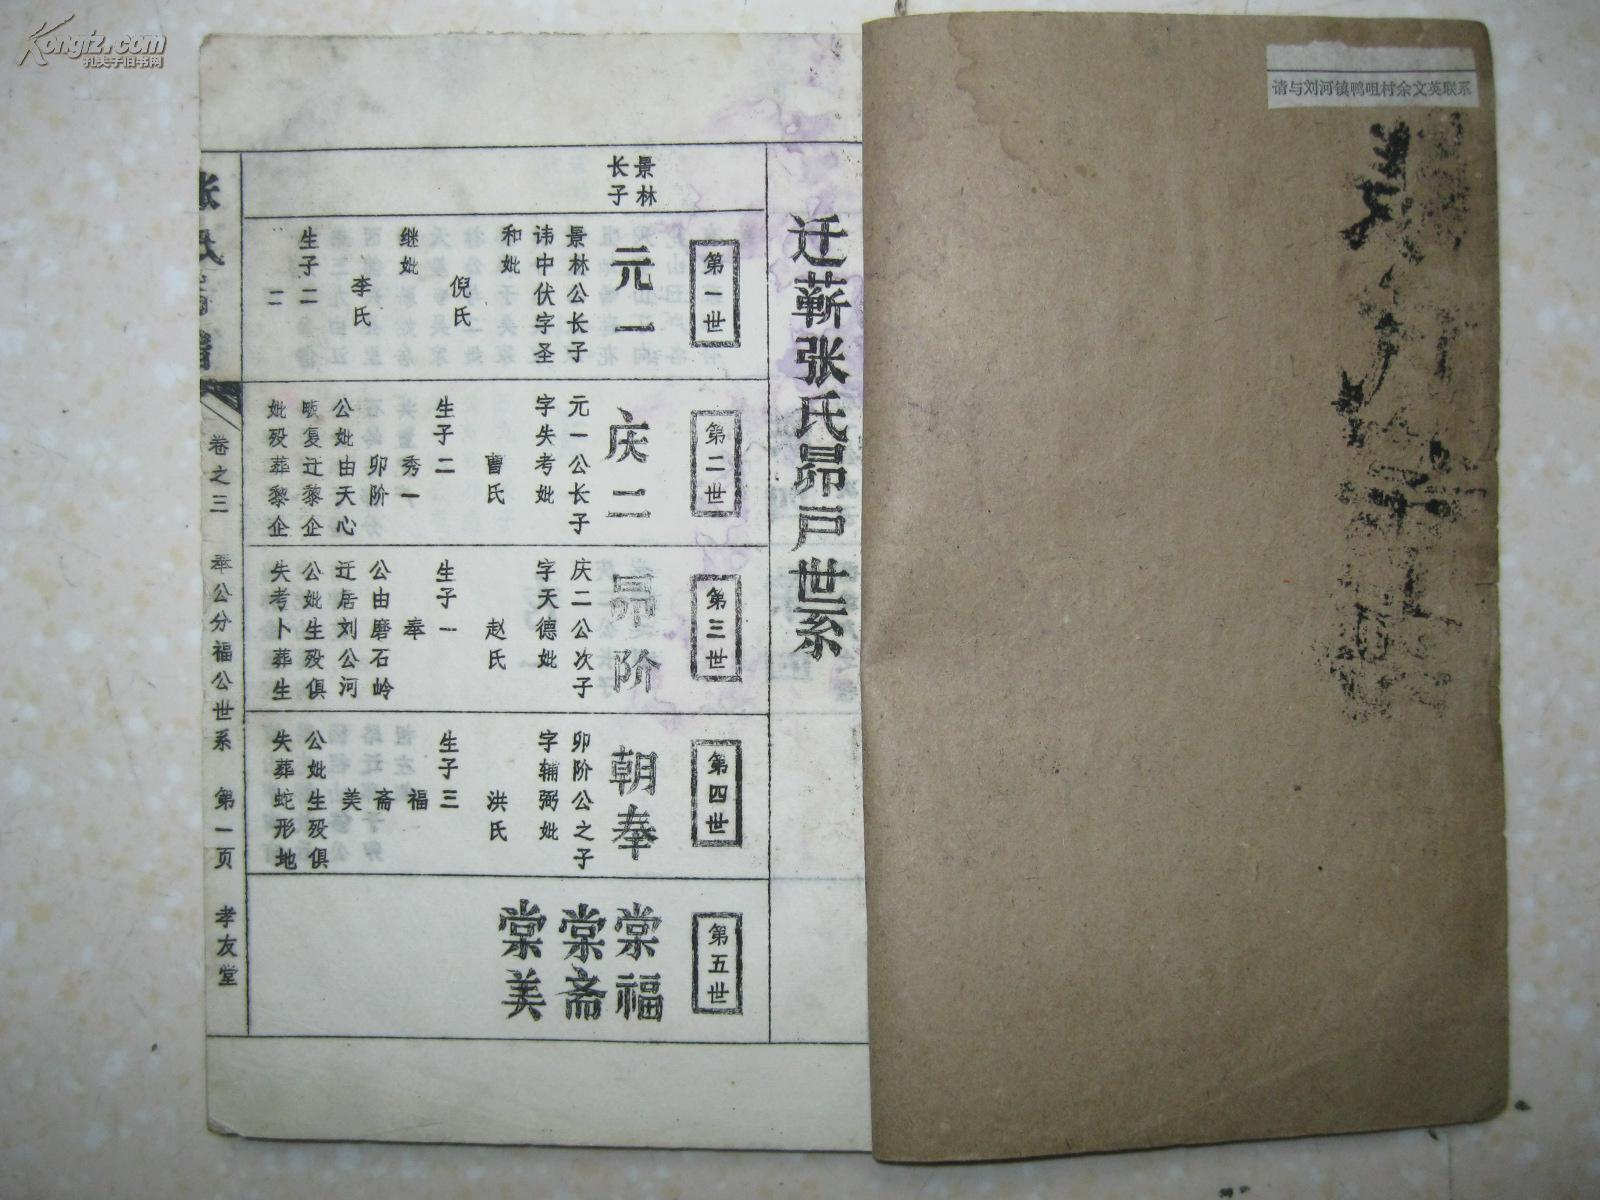 Kongfz.com
孔夫子旧书网
请与刘河镇鸭咀村余文英联系
迁蕲张氏昂户世系
景林
长子
第一世
元一
景林公长子
讳中伏字圣
和妣
倪氏
继妣
李氏
生子二
第二世
庆二
元一公长子
字失考妣
曹氏
生子二
秀一
卯阶
公妣由天心
畈复迁黎企
妣殁葬黎企
第三世
昂阶
庆二公次子
字天德妣
赵氏
生子一
奉
公由磨石岭
迁居刘公河
公妣生殁俱
失考卜葬生
第四世
朝奉
卯阶公之子
字辅弼妣
洪氏
生子三
福
斋
美
公妣生殁俱
失葬蛇形地
第五世
棠福
棠斋
棠美
张氏
卷之三 奉公分福公世系 第一页 孝友堂